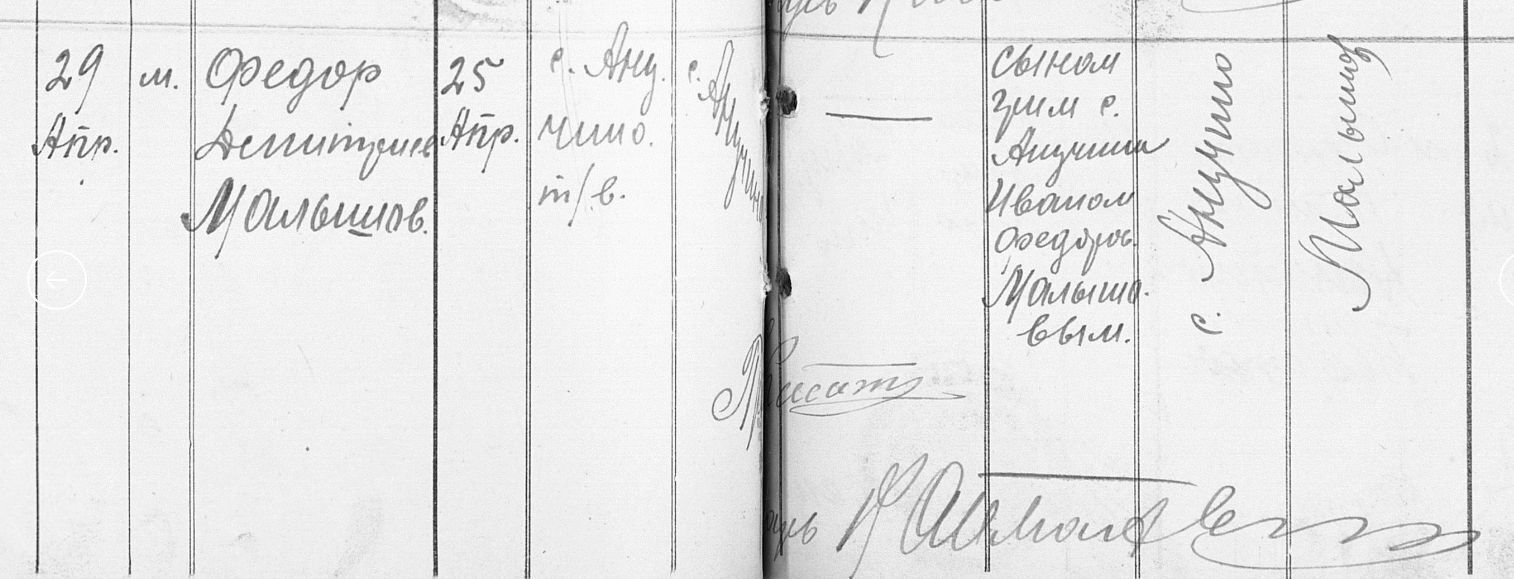 29
Апр.
м.
Федор
Дмитриев
Малышов.
25
Апр.
с. Ану.
чино.
т/в.
с. Анучино
—
сыном
грим с.
Анучина
Иваном
Федоров.
Малышо.
вым.
с. Анучино
Малышов